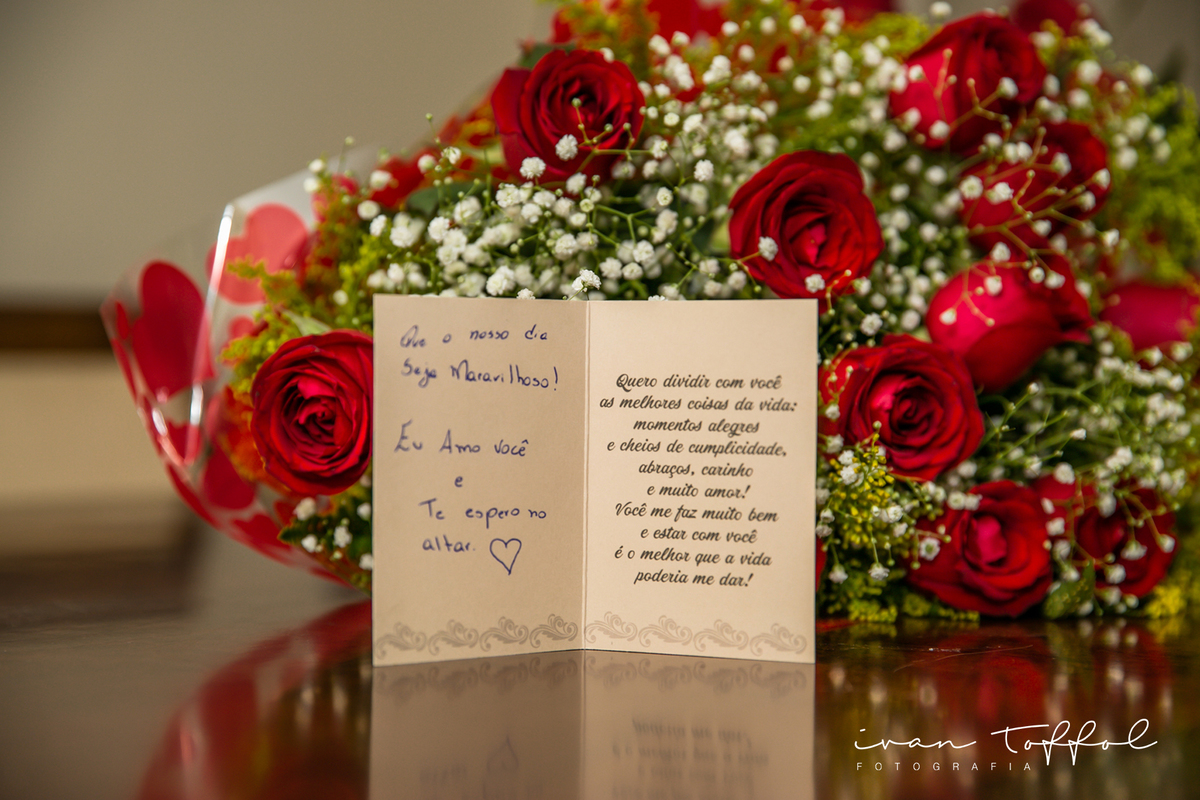 Que o nosso dia
Seja Maravilhoso!
Eu Amo você
e
Te espero no
altar.
Quero dividir com você
as melhores coisas da vida:
momentos alegres
e cheios de cumplicidade,
abraços, carinho
e muito amor!
Você me faz muito bem
e estar com você
é o melhor que a vida
poderia me dar!
ivan toffol
FOTOGRAFIA